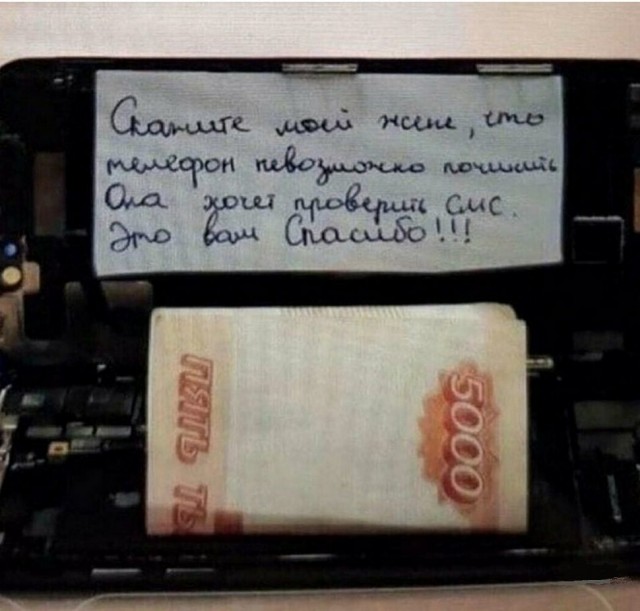 Скажите моей жене, что
телефон невозможно починить
Она хочет проверить смс.
Это вам Спасибо!!!
5000
ПЯТЬ ТЫ